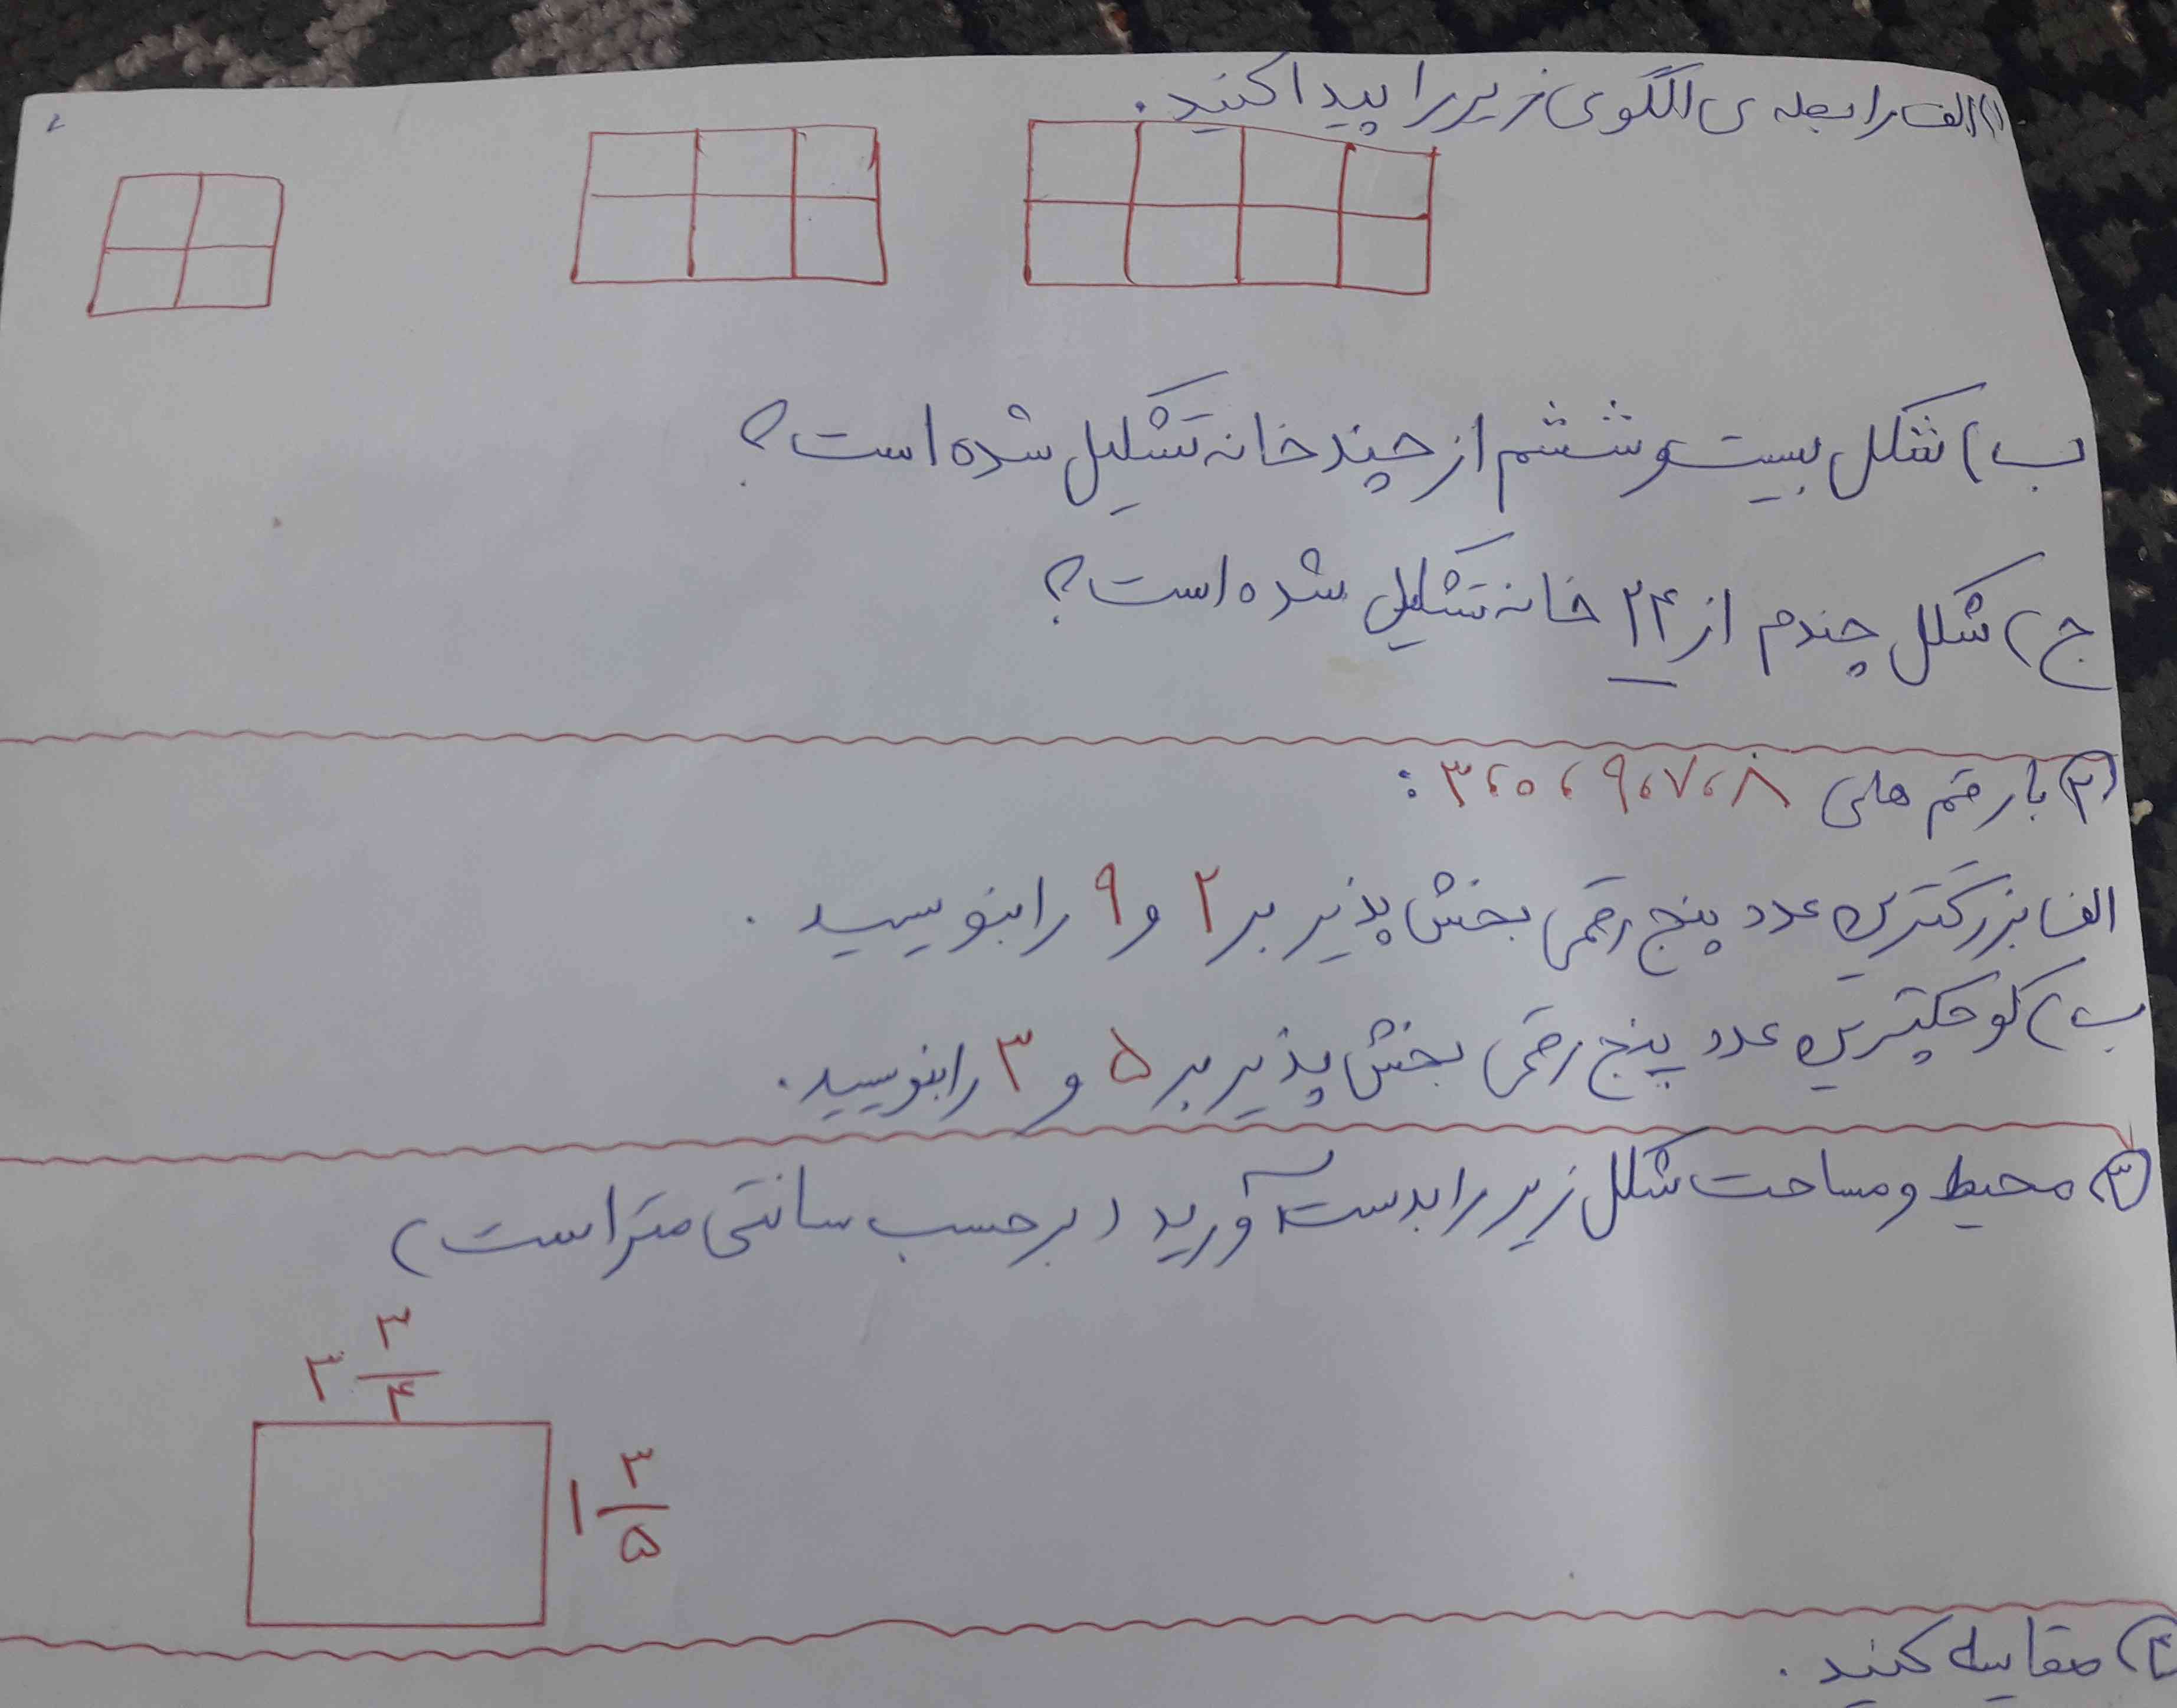 ۱) الف رابطه ی الگوی زیر را پیدا کنید.
ب) شکل بیست و ششم از چند خانه تشکیل شده است؟
ج) شکل چندم از ۲۴ خانه تشکیل شده است؟
۲) با رقم های ۸، ۷، ۹، ۰، ۳ :
الف) بزرگترین عدد پنج رقمی بخش پذیر بر ۲ و ۹ را بنویسید.
ب) کوچکترین عدد پنج رقمی بخش پذیر بر ۵ و ۳ را بنویسید.
۳) محیط و مساحت شکل زیر را بدست آورید (بر حسب سانتی متر است)
۲ ۳/۴
۱ ۳/۵
۴) مقایسه کنید.